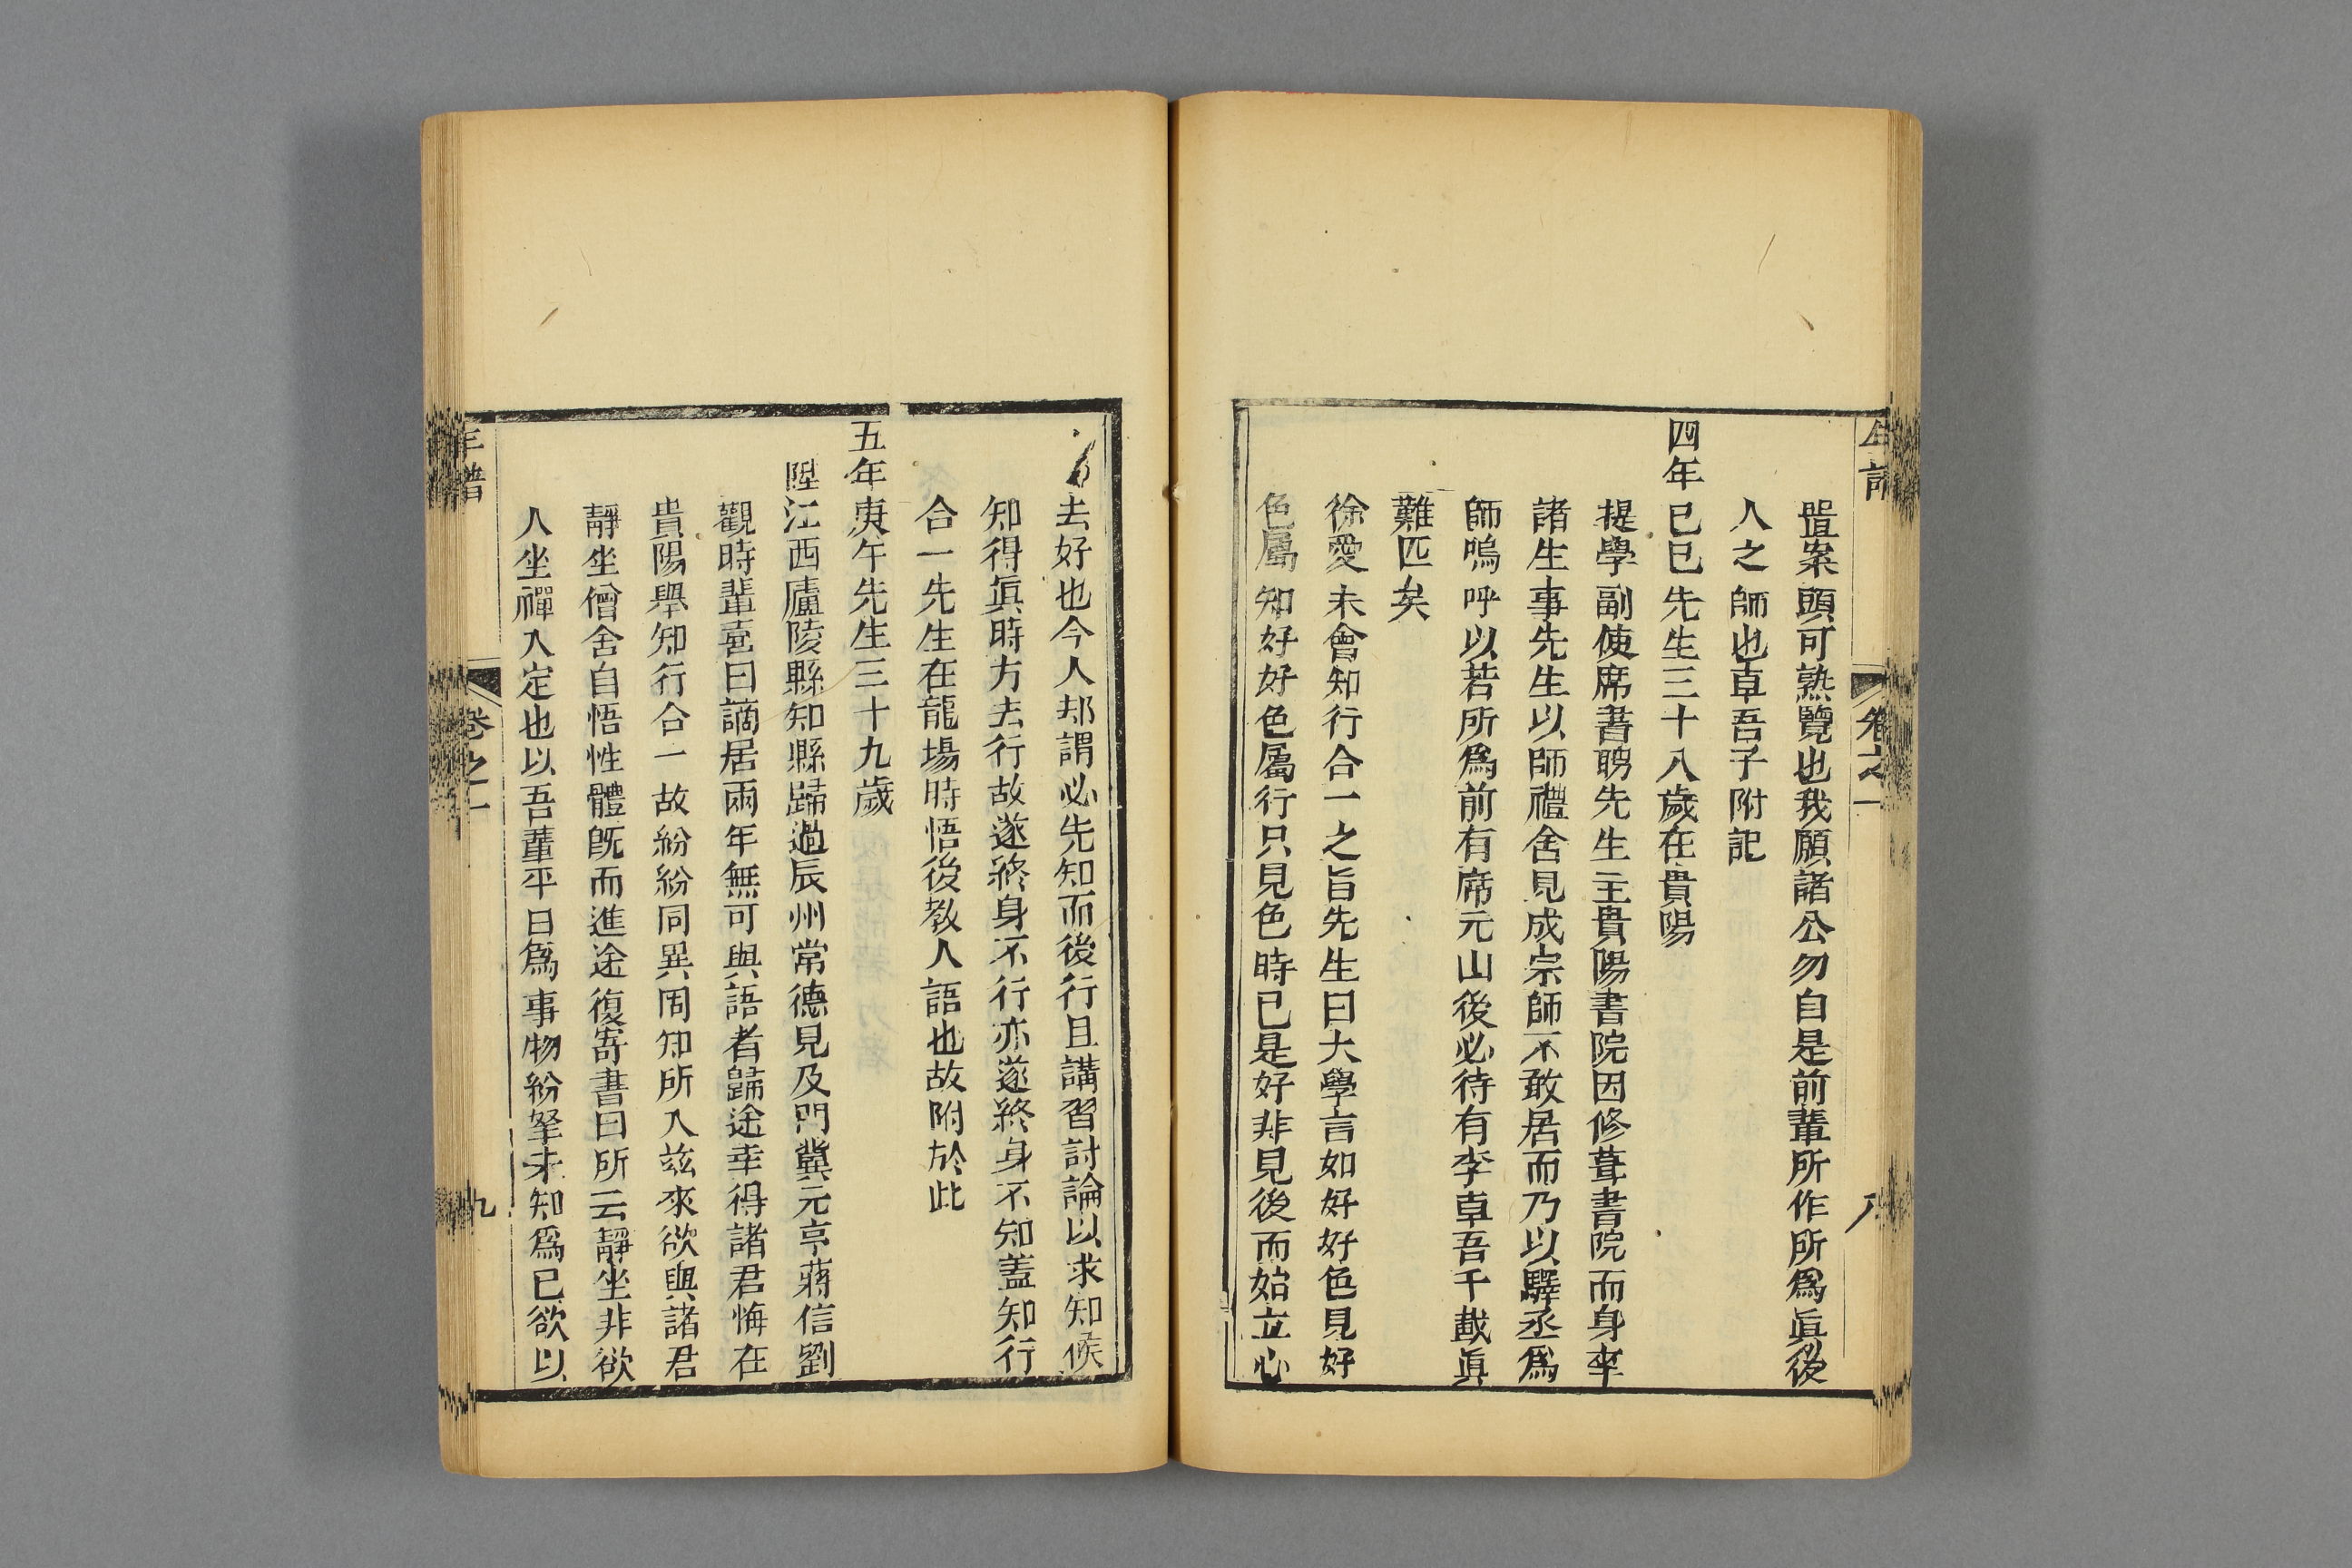 年譜 卷之一 八
置案頭可熟覽也我願諸公勿自是前輩所作所爲眞後
人之師也卓吾子附記
四年己巳先生三十八歲在貴陽
提學副使席書聘先生主貴陽書院因修葺書院而身率
諸生事先生以師禮舍見成宗師不敢居而乃以驛丞爲
師嗚呼以若所爲前有席元山後必待有李卓吾千載眞
難匹矣
徐愛未會知行合一之旨先生曰大學言如好好色見好
色屬知好好色屬行只見色時已是好非見後而始立心
去好也今人却謂必先知而後行且講習討論以求知候
知得眞時方去行故遂終身不行亦遂終身不知蓋知行
合一先生在龍場時悟後教人語也故附於此
五年庚午先生三十九歲
陞江西廬陵縣知縣歸過辰州常德見及門冀元亨蔣信劉
觀時輩喜曰謫居兩年無可與語者歸途幸得諸君悔在
貴陽舉知行合一故紛紛同異罔知所入兹來欲與諸君
靜坐僧舍自悟性體旣而進途復寄書曰所云靜坐非欲
人坐禪入定也以吾輩平日爲事物紛拏未知爲已欲以
年譜 卷之一 九